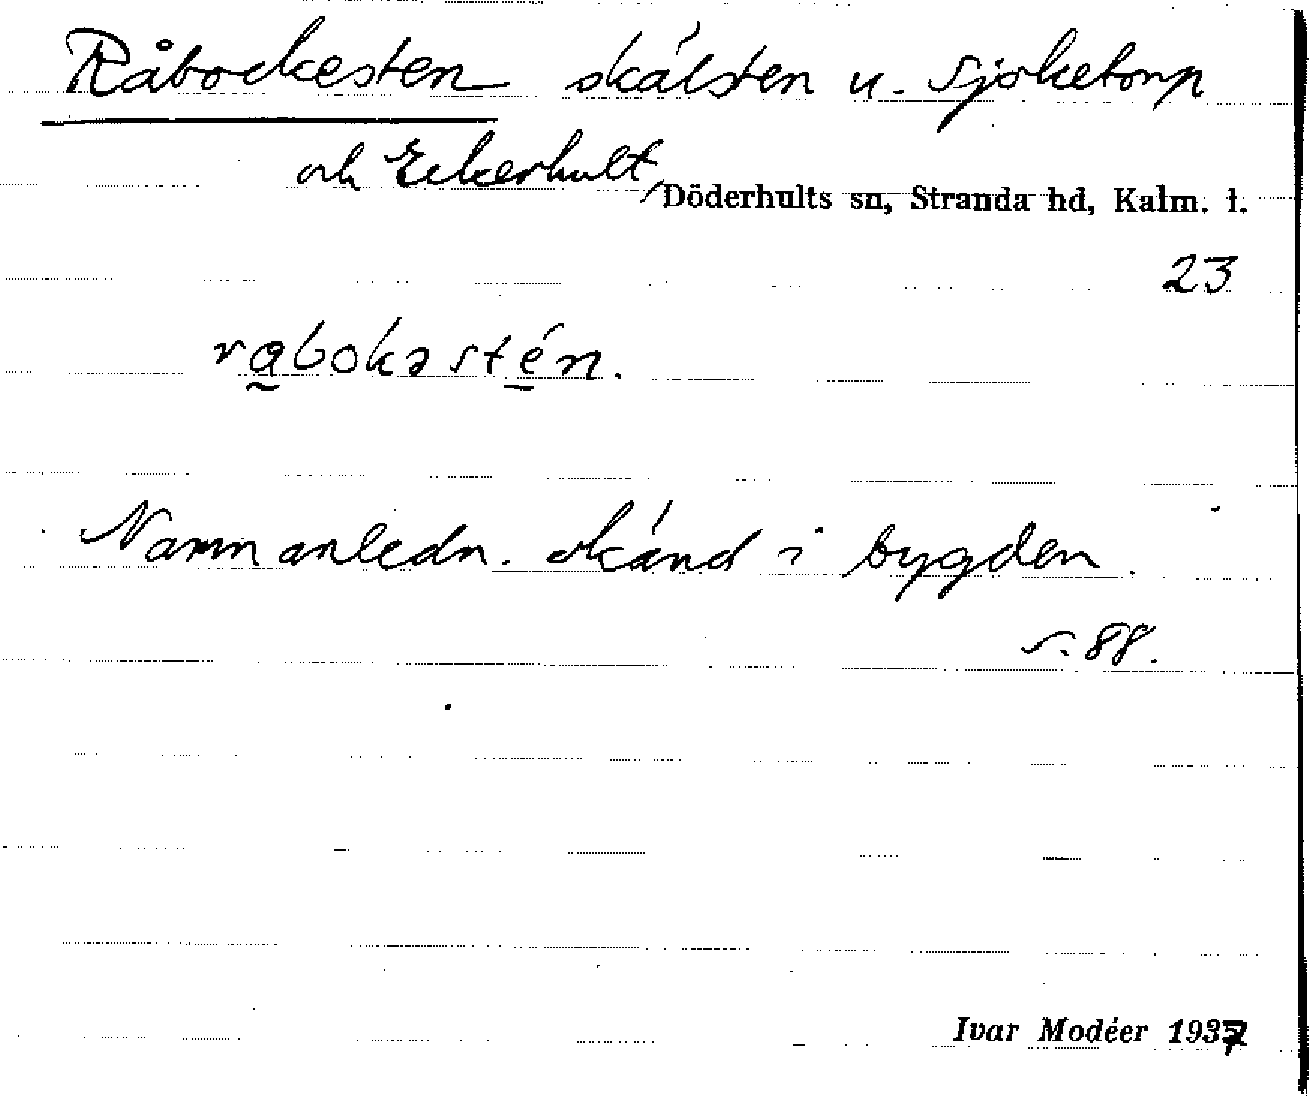 Råbockesten skälsten u. Sjöketorp
och Eckerhult
Döderhults sn, Stranda hd, Kalm. l.
23
Namnanledn. okänd i bygden.
s. 88.
Ivar Modéer 1937